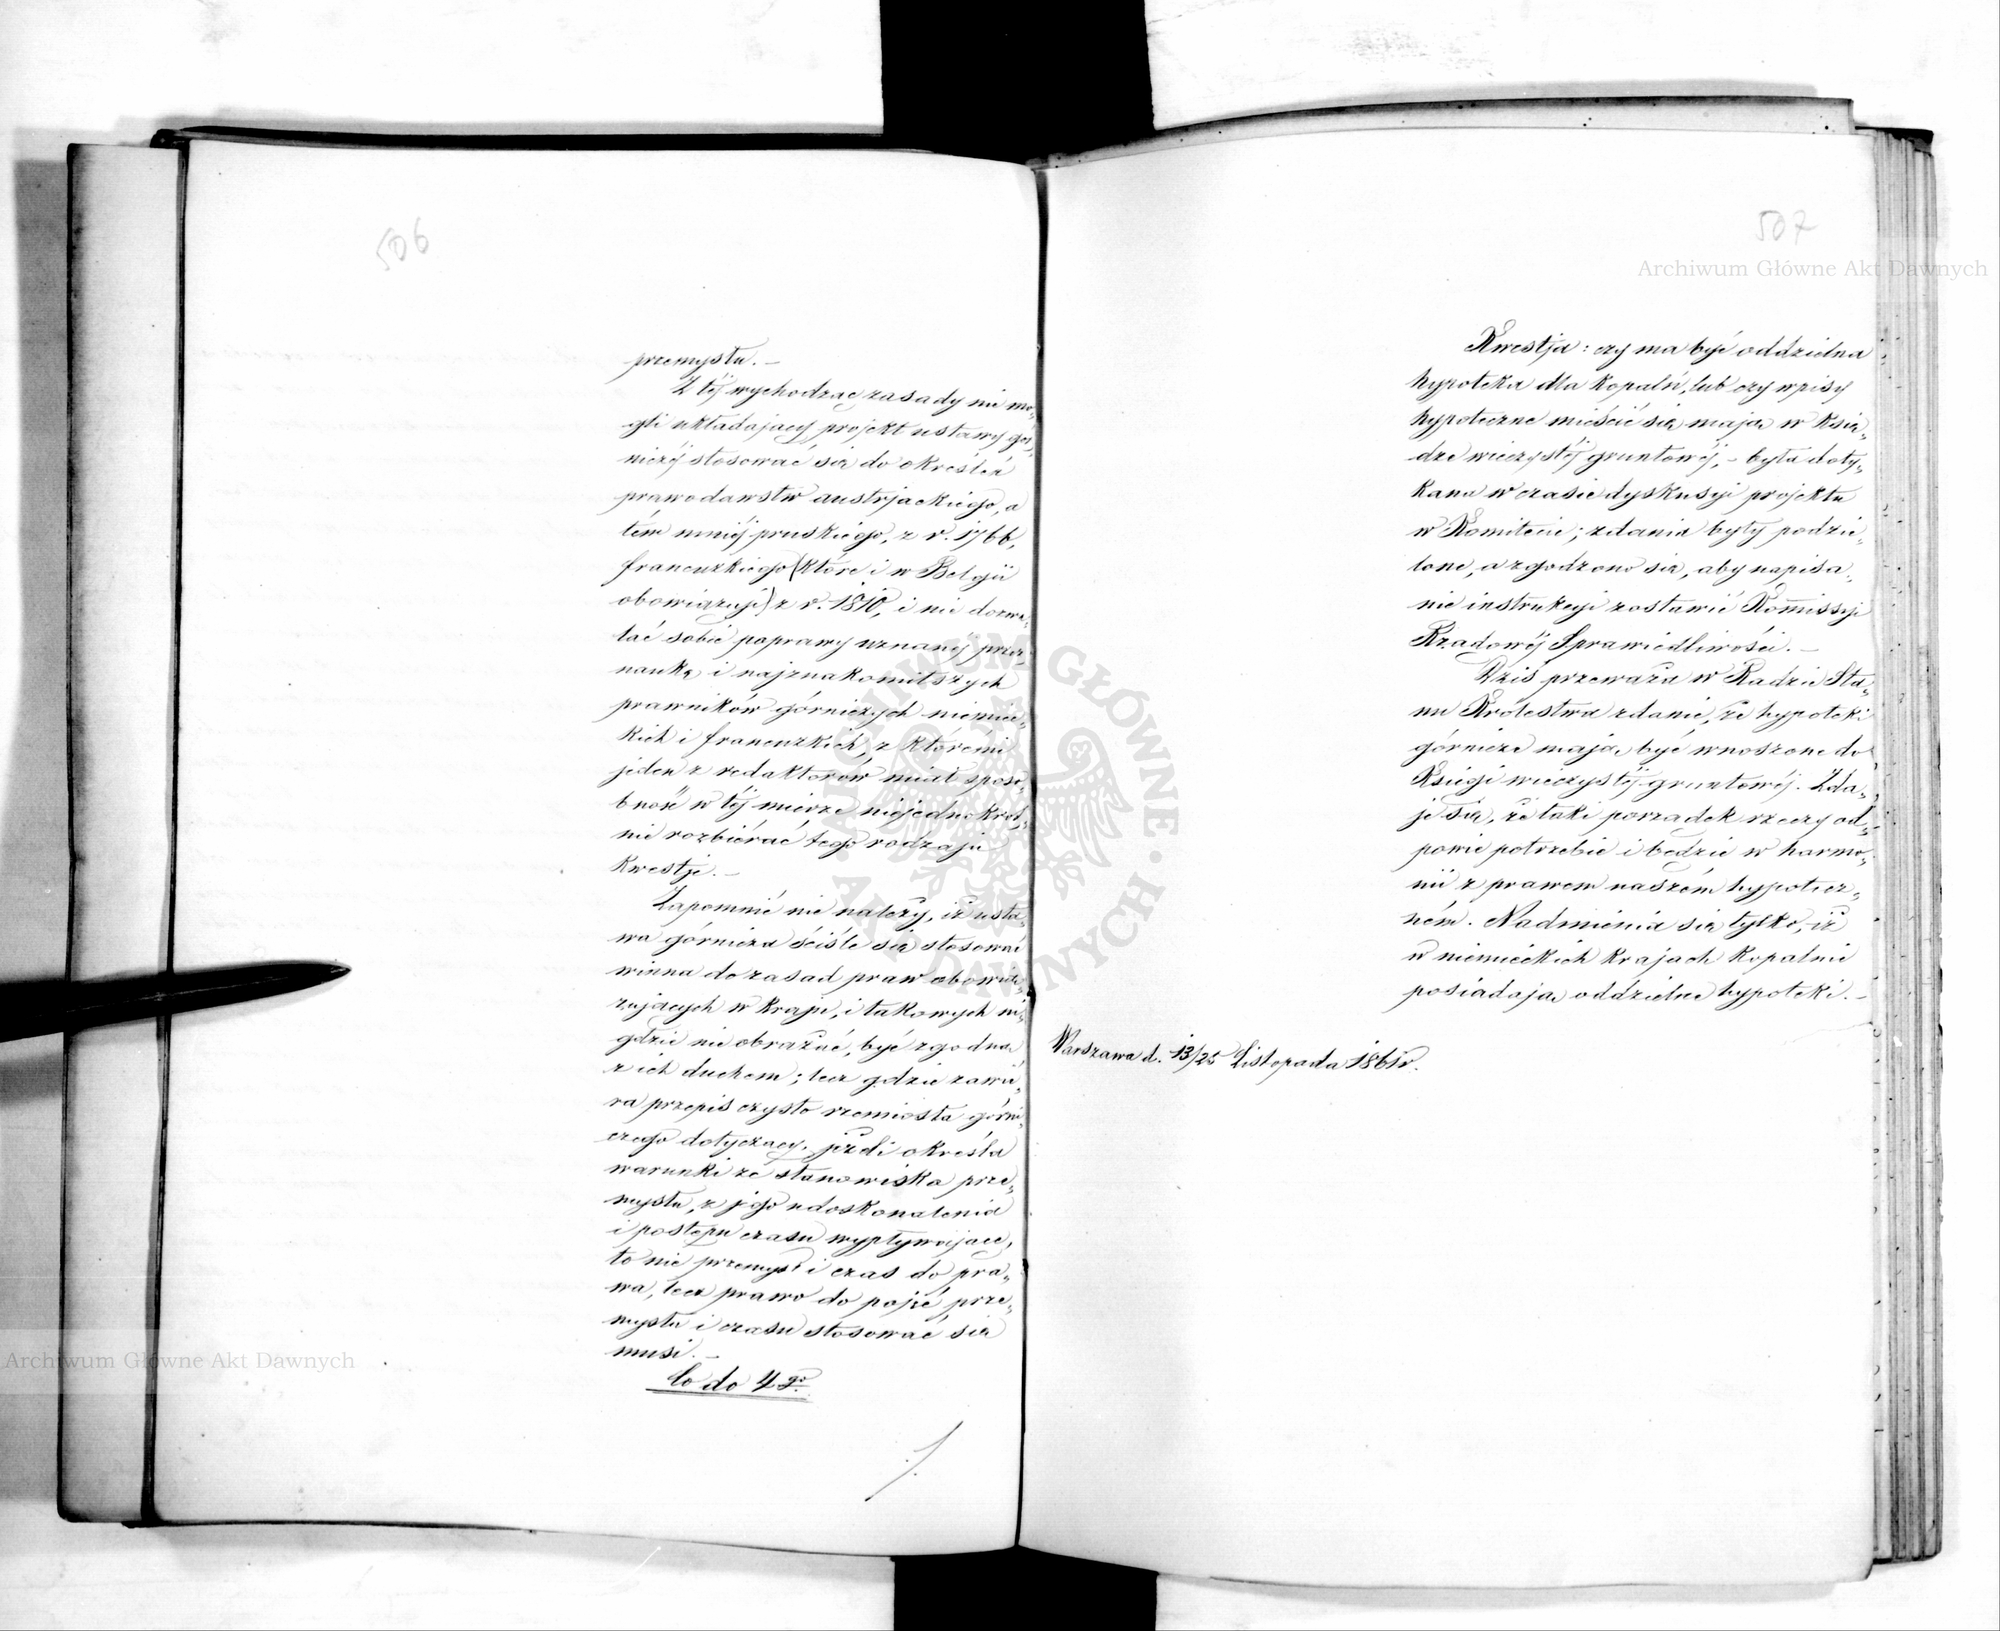 506
przemysłu. —
Z téj wychodząc zasady nie mo-
gli układający projekt ustawy gór-
niczéj stosować się do określeń
prawodawstw austrjackiego, a
tém mniéj pruskiego, z r. 1766,
francuzkiego (które i w Belgii
obowiązuje) z r. 1810, i nie dozwa-
lać sobie poprawy uznanéj przez
naukę i najznakomitszych
prawników górniczych niemiec-
kich i francuzkich, z któremi
jeden z redaktorów miał sposo-
bność w téj mierze niejednokrot-
nie rozbiérać tego rodzaju
kwestje. —
Zapomnieć nie należy, iż usta-
wa górnicza ściśle się stosować
winna do zasad praw obowią-
zujących w kraju, i takowych ni-
gdzie nie obrażać, być zgodną
z ich duchem; lecz gdzie zawie-
ra przepis czysto rzemiosła górni-
czego dotyczący, jeżeli określa
warunki ze stanowiska prze-
mysłu, z jego udoskonalenia
i postępu czasu wypływające,
to nie przemysł i czas do pra-
wa, lecz prawo do pojęć prze-
mysłu i czasu stosować się
musi. —
Co do 4go.
507
Kwestja: czy ma być oddzielna
hypoteka dla kopalń, lub czy wpisy
hypoteczne mieścić się mają w Księ-
dze wieczystéj gruntowéj, – była doty-
kana w czasie dyskusyi projektu
w Komitecie; zdania były podzie-
lone, a zgodzono się, aby napisa-
nie instrukcyi zostawić Kommissyi
Rządowéj Sprawiedliwości. —
Dziś przeważa w Radzie Sta-
nu Królestwa zdanie, że hypoteki
górnicze mają być wnoszone do
Księgi wieczystéj gruntowéj. Zda-
je się, że taki porządek rzeczy od-
powie potrzebie i będzie w harmo-
nii z prawem naszém hypotecz-
ném. Nadmienia się tylko, iż
w niemieckich krajach kopalnie
posiadają oddzielne hypoteki. —
Warszawa d. 13/25 Listopada 1861 r.
Archiwum Główne Akt Dawnych
Archiwum Główne Akt Dawnych
ARCHIWUM GŁÓWNE AKT DAWNYCH